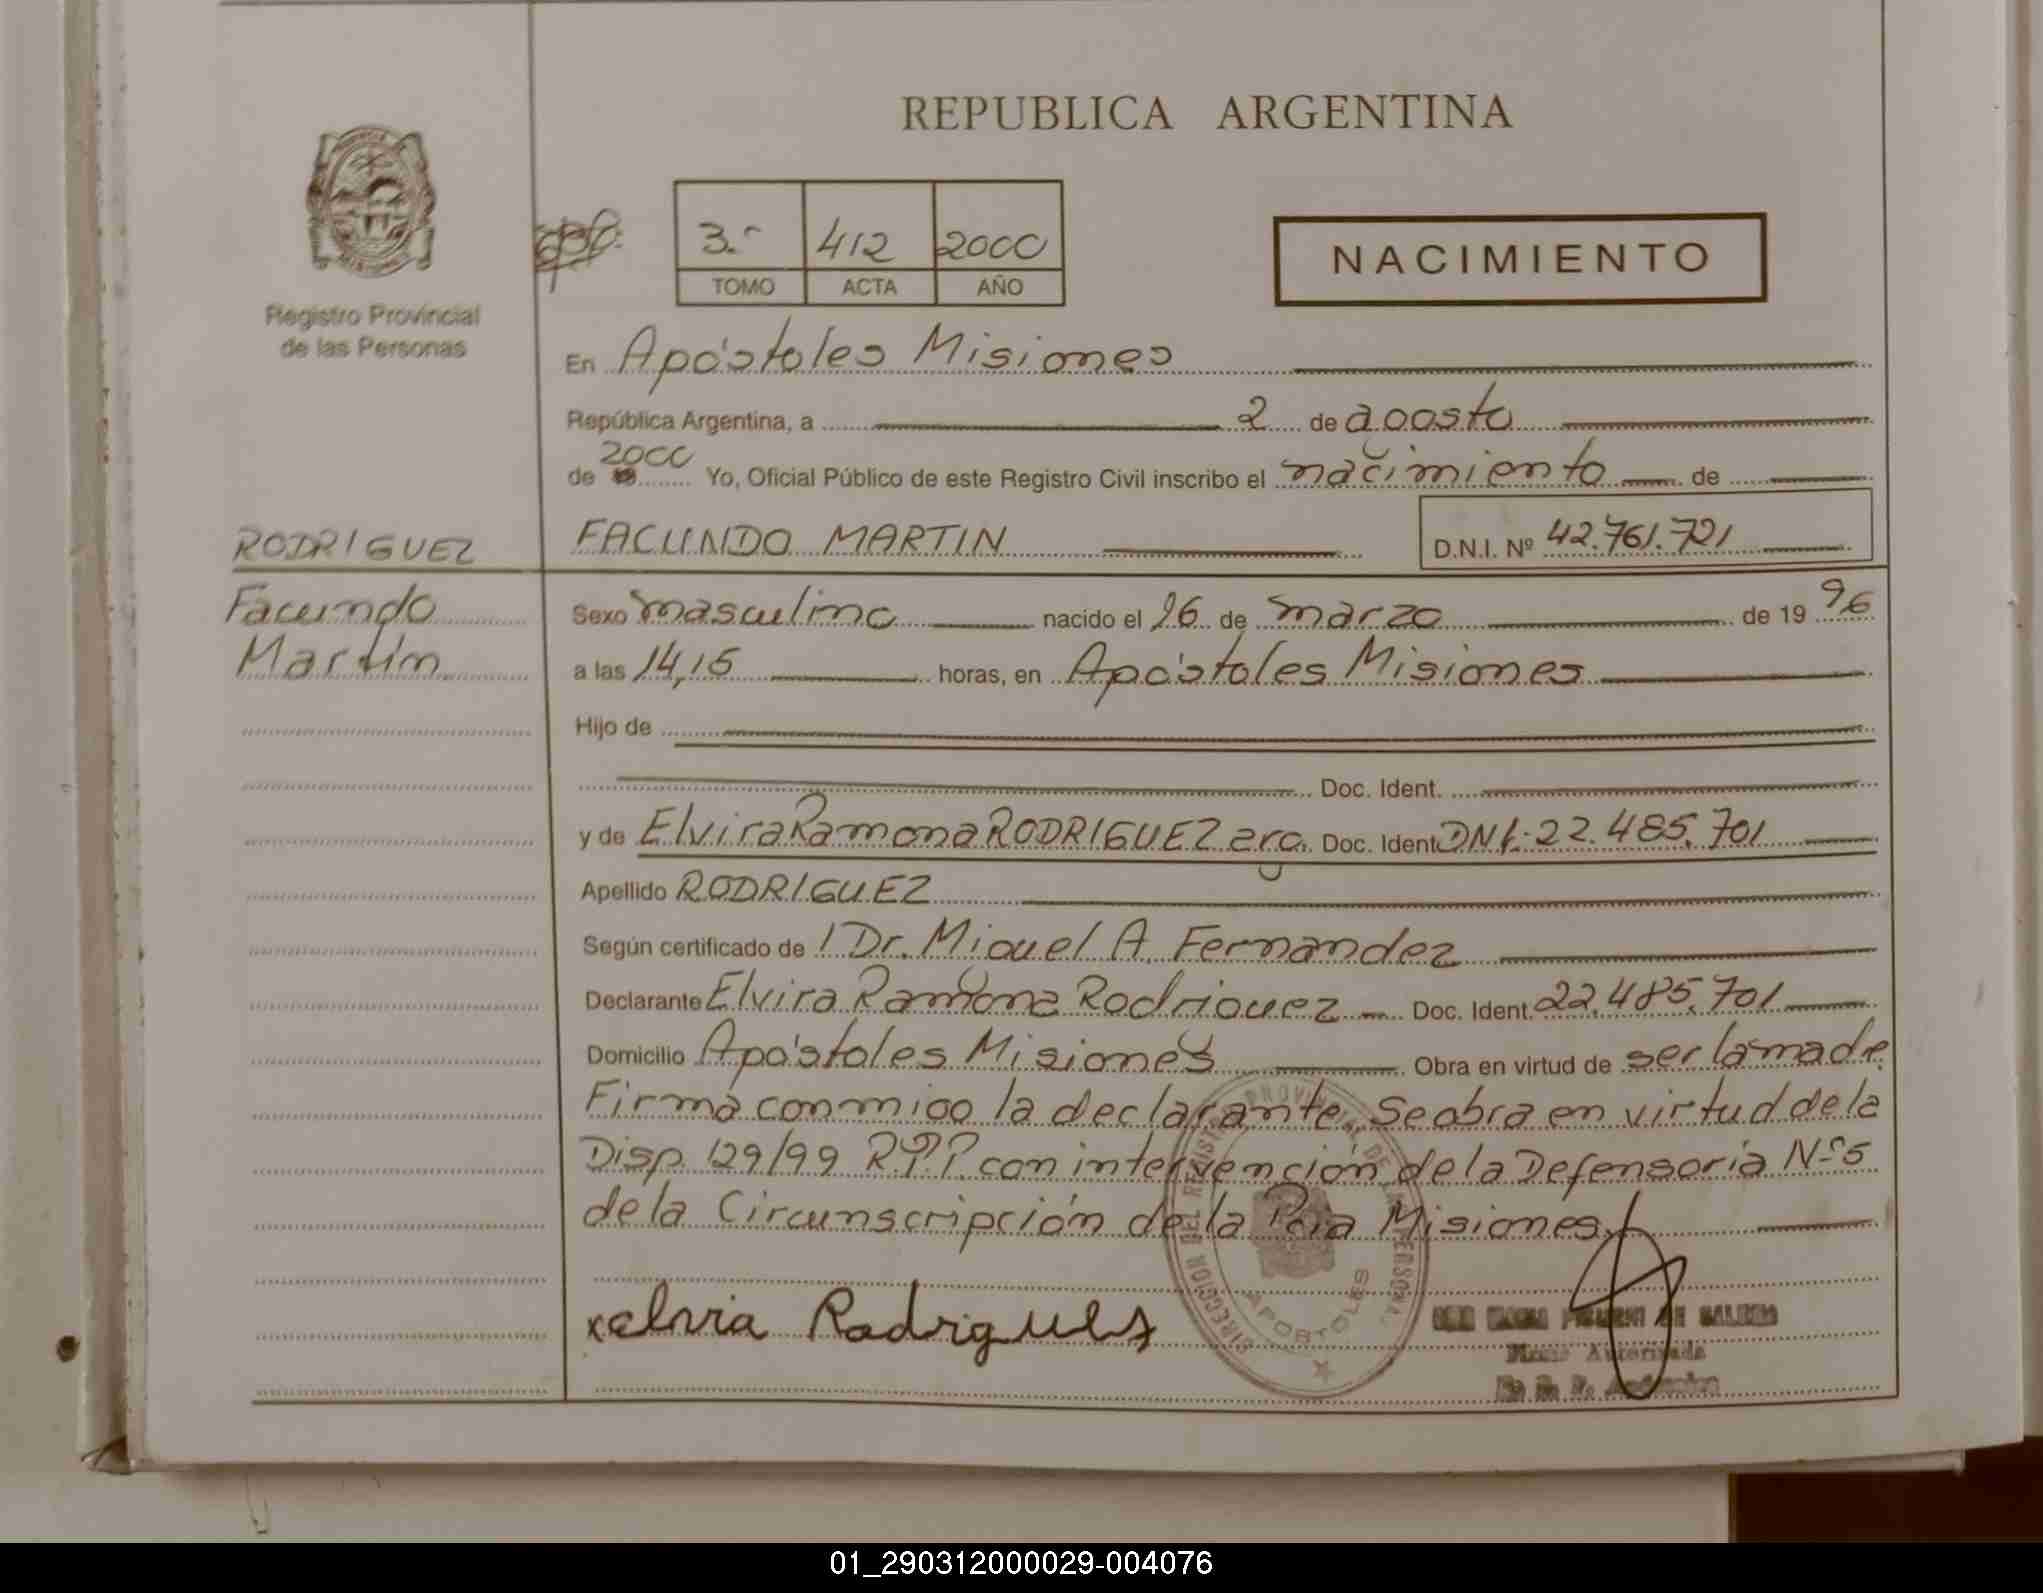 REPUBLICA ARGENTINA
3.- 412 2000
TOMO ACTA AÑO
NACIMIENTO
Registro Provincial
de las Personas
En Apóstoles Misiones
República Argentina, a 2 de agosto
de 2000 Yo, Oficial Público de este Registro Civil inscribo el nacimiento de
RODRIGUEZ
Facundo
Martín
FACUNDO MARTIN D.N.I. Nº 42.761.721
Sexo masculino nacido el 26 de marzo de 19 96
a las 14,15 horas, en Apóstoles Misiones
Hijo de
Doc. Ident.
y de Elvira Ramona RODRIGUEZ arg. Doc. Ident. DNI: 22.485.701
Apellido RODRIGUEZ
Según certificado de / Dr. Miguel A. Fernandez
Declarante Elvira Ramona Rodriguez Doc. Ident. 22.485.701
Domicilio Apóstoles Misiones Obra en virtud de ser la madre
Firma conmigo la declarante, Se obra en virtud de la
Disp. 129/99 R.P.P. con intervención de la Defensoria Nº 5
de la Circunscripción de la Pcia Misiones
DIRECCION DEL REGISTRO PROVINCIAL DE LAS PERSONAS
APOSTOLES
xelvia Rodrigues
Firma Autorizada
01_290312000029-004076